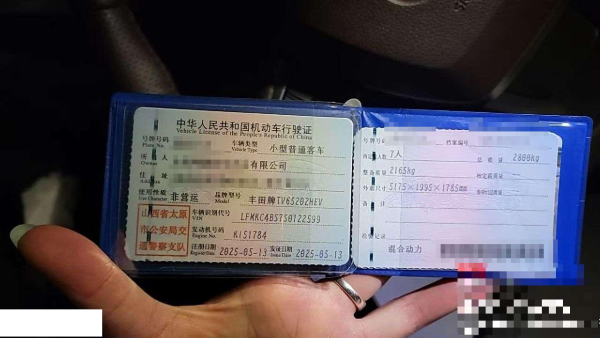 中华人民共和国机动车行驶证
Vehicle License of the People's Republic of China
号牌号码 车辆类型 小型普通客车
Plate No. Vehicle Type
所 有 人 有限公司
Owner
住 址
Address
使用性质 非营运 品牌型号 丰田牌TV6520ZHEV
Use Character Model
山西省太原市公安局交通警察支队
车辆识别代号 LFMKC4BS750122599
VIN
发动机号码 K1S1784
Engine No.
注册日期 2025-05-13 发证日期 2025-05-13
Register Date Issue Date
号牌号码 档案编号
人数 7人 总 质 量 2800kg
整备质量 2165kg 核定载质量
外廓尺寸 5175×1995×1785
备 注
检验记录
混合动力